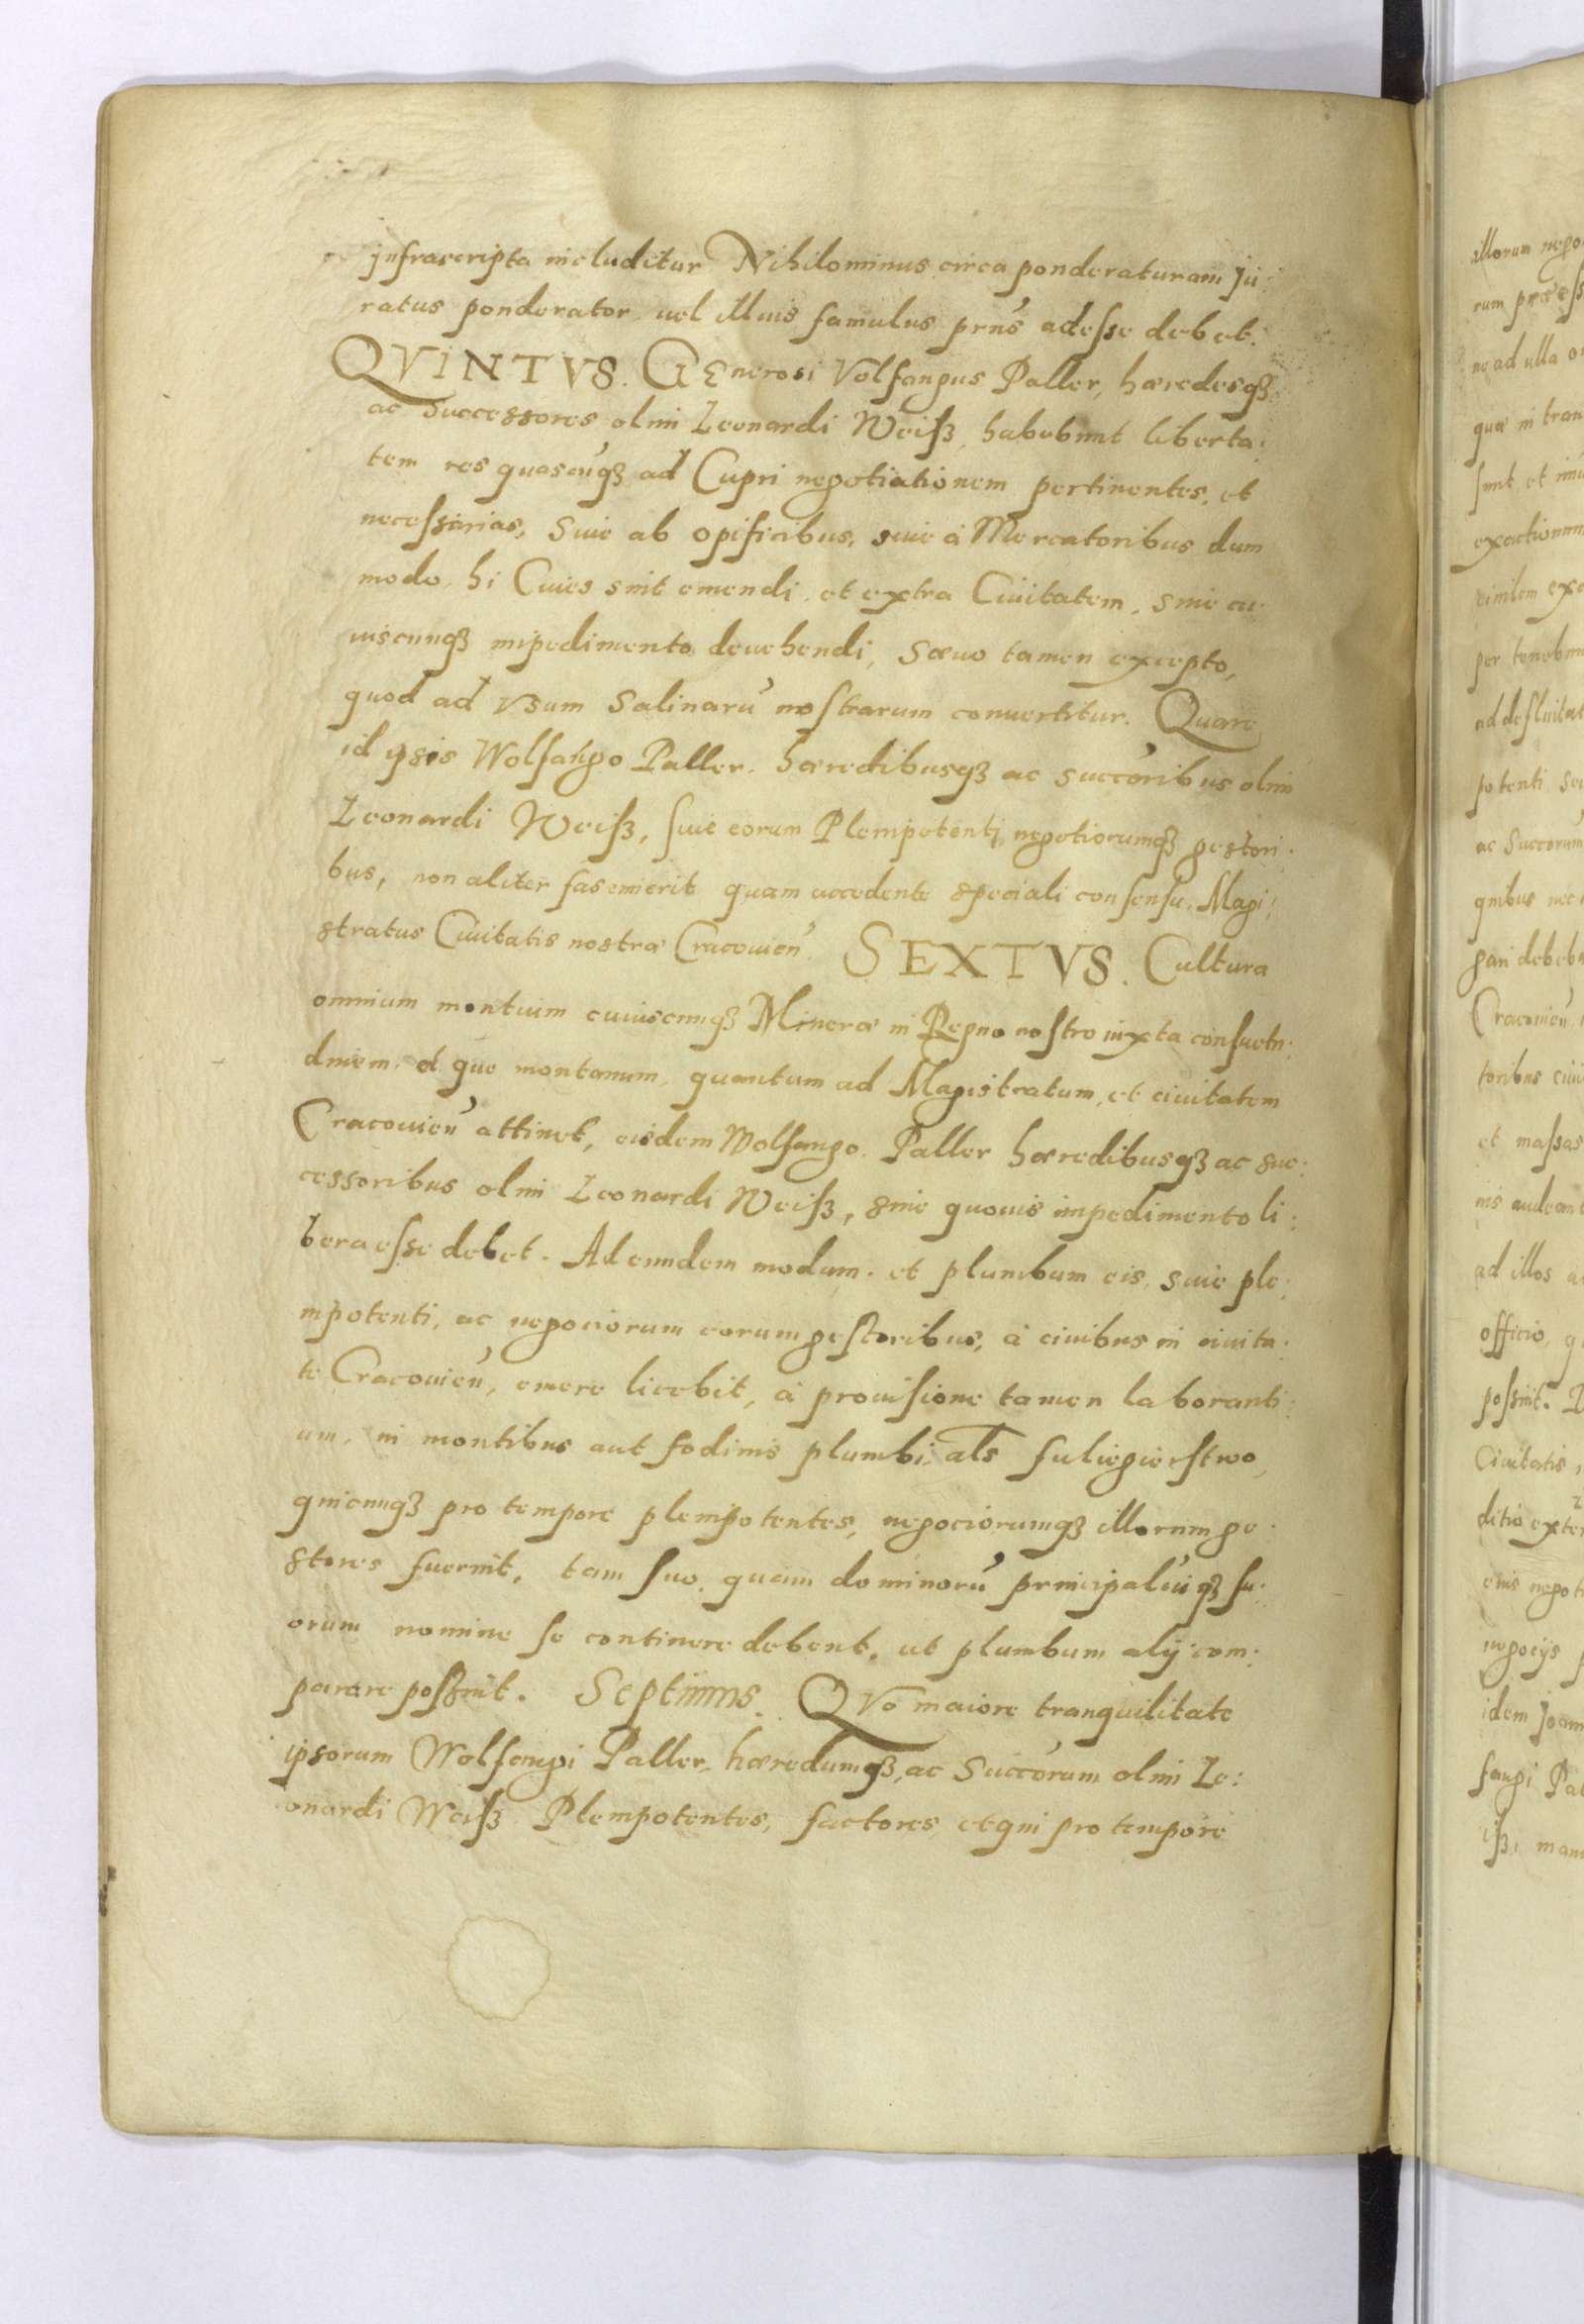 jnfrascripta includitur Nihilominus circa ponderaturam Ju:
ratus ponderator uel illius famulus prns̄ adesse debet.
QVINTVS. GEnerosi Volfangus Paller, hæredesqʒ
ac Successores olim Leonardi Weisß, habebunt liberta:
tem res quascūqʒ ad Cupri negotiationem pertinentes, et
necessarias, Siue ab opificibus, siue à Mercatoribus dum
modo hi Ciues sint emendi et extra Ciuitatem, sine cu
uiscunqʒ impedimento deuehendi, Sæuo tamen excepto,
quod ad vsum Salinarū nostrarum conuertitur. Quare
id ipsis Wolfango Paller. hæredibusqʒ ac succōribus olim
Leonardi Weisß, siue eorum Plempotenti, negotiorumqʒ gestori.
bus, non aliter fas emerit quam accedente speciali consensu. Magi:
stratus Ciuitatis nostræ Cracouien̄. SEXTVS. Cultura
omnium montium cuiuscunqʒ Mineræ in Regno nostro iuxta consuetu:
dinem, et que montanum, quantum ad Magistratum, et ciuitatem
Cracouien̄ attinet, eisdem Wolfango Paller hæredibusqʒ ac suc:
cessoribus olim Leonardi Weisß, sine quouis impedimento li:
bera esse debet. Ad eundem modum. et plumbum eis, siue ple:
mpotenti, ac negociorum eorum gestoribus, à ciuibus in ciuita:
te Cracouien̄, emere licebit, à prouisione tamen laboranti:
um, in montibus aut fodinis plumbi, als̄ fuliegierstwo,
quicunqʒ pro tempore plempotentes, negociorumqʒ illorum ge:
stores fuerint, tam suo quam dominorū principaliūqʒ su:
orum nomine se continere debent, ut plumbum alij com:
parare possint. Septimus. QVo maiore tranquilitate
ipsorum Wolfangi Paller, hæredumqʒ, ac Succōrum olim Le:
onardi Weisß Plempotentes, factores et qui pro tempore